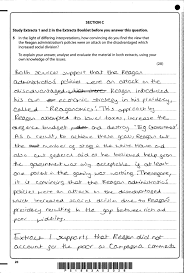 SECTION C
Study Extracts 1 and 2 in the Extracts Booklet before you answer this question.
In the light of differing interpretations, how convincing do you find the view that
the Reagan administration's policies were an attack on the disadvantaged which
increased social division?
To explain your answer, analyse and evaluate the material in both extracts, using your
own knowledge of the issues.
(20)
Both sources support that the Reagan
administration policies were an attack on the
disadvantaged. Reagan introduced
his economic strategy in his presidency,
called 'Reaganomics'. This
Reagan attempted to lower taxes, increase the
defence budget and destroy 'Big Government'.
As a result, to achieve these goals Reagan cut the
number of
also cut federal aid as he believed help from
the government is only acceptable if at least
one person in the family was working. Therefore,
it is convincing that the Reagan administration
policies were an attack on the disadvantaged
with increased social division due to Reagan's
presidency resulting in the gap between rich and
poor
Extract 1 supports that Reagan did not
account for the poor as Congress's